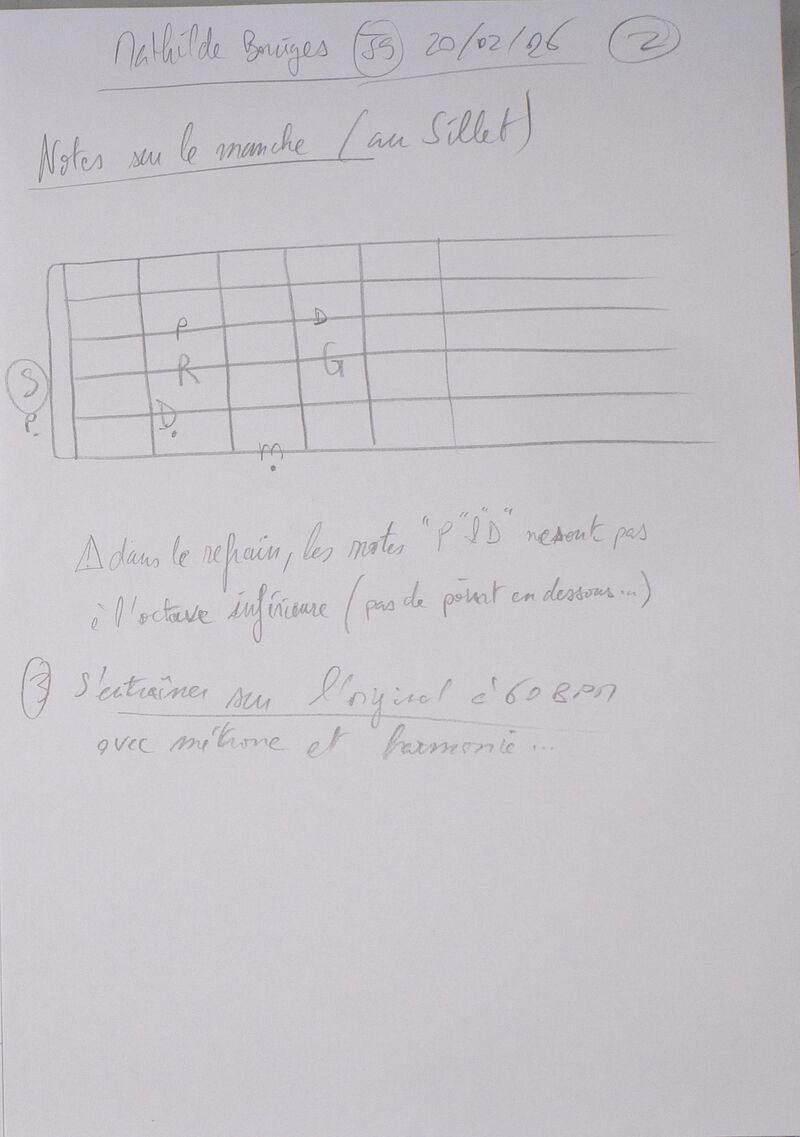 Mathilde Bouges 59 20/02/26 2
Notes sur le manche (au Sillet)
P D
S R G
P. Ḍ
ṃ
⚠ dans le refrain, les notes "P" "D" ne sont pas
à l'octave inférieure (pas de point en dessous...)
3 S'entraîner sur l'original à 60 BPM
avec métrone et harmonie...